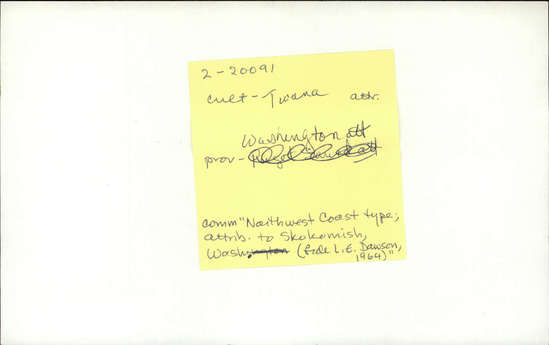 2-20091
cult - Twana attr.
Washington att
prov -
comm "Northwest Coast type;
attrib. to Skokomish,
Wash. (fide L.E. Dawson,
1964)"